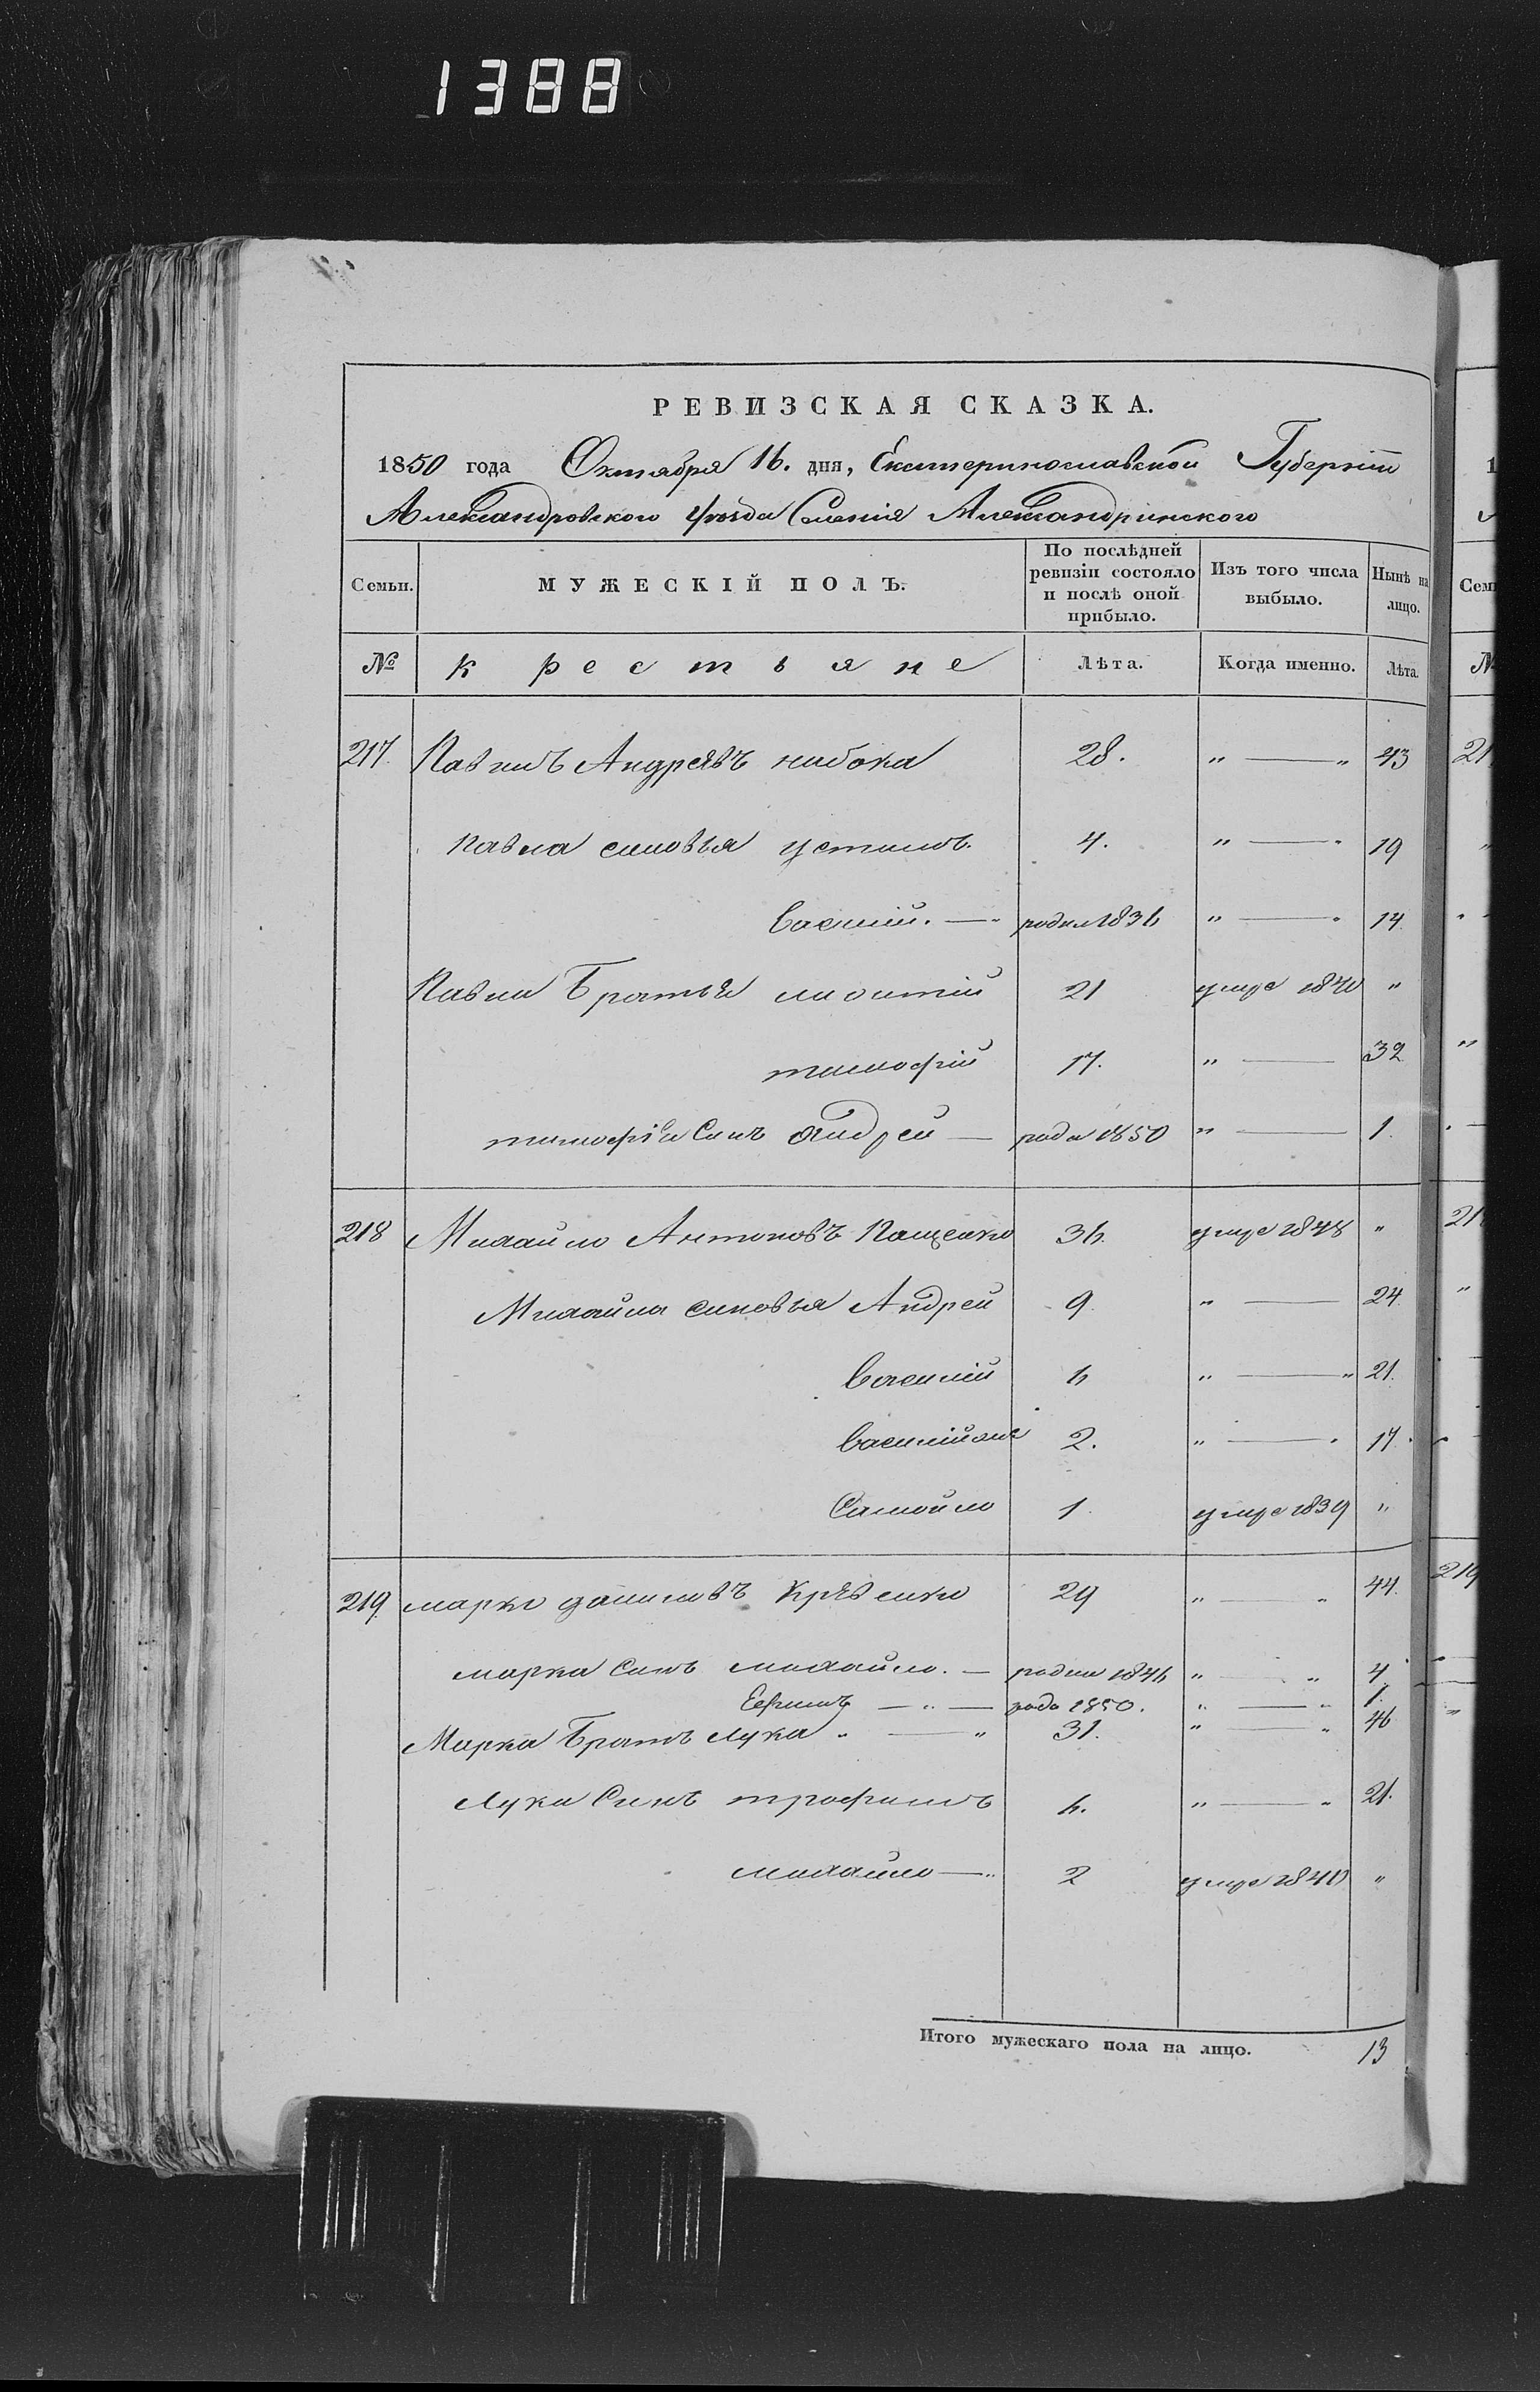 1388
РЕВИЗСКАЯ СКАЗКА.
1850 года Октября 16. дня, Екатеринославской Губерніи
Александровского уѣзда Селенія Александринского
Семьи. МУЖЕСКІЙ ПОЛЪ. По послѣдней ревизіи состояло и послѣ оной прибыло. Изъ того числа выбыло. Нынѣ на лицо.
№ крестьяне Лѣта. Когда именно. Лѣта.
217. Павилъ Андреявъ набока 28. " — " 43
Павла синовья устимъ. 4. " — " 19
Василій. — родил 1836 " — " 14.
Павла Братья 21 умре 1840 "
тимофій 17. " — 32
тимофія Синъ Андрей — рода 1850 " — 1.
218 Михайло Антоновъ Пащенко 36. умре 1848 "
Михайла синовья Андрей 9. " — 24.
Василій 6 " — " 21.
Василій 2. " — " 17.
Самойло 1. умре 1839 "
219. марко даниловъ 29 " — " 44.
марка Синъ михайло. — родил 1846 " — " 4.
Ефимъ — " — рода 1850. " — " 1.
Марка Братъ Лука " — " 31. " — " 46
Лука Синъ трофимъ 6. " — " 21.
михайло — " 2 умре 1840 "
Итого мужескаго пола на лицо. 13